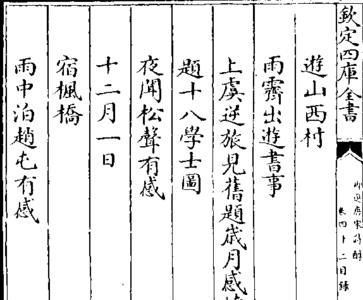 欽定四庫全書
御選唐宋詩醇
卷四十二目錄
遊山西村
雨霽出遊書事
上虞逆旅見舊題歲月感
題十八學士圖
夜聞松聲有感
十二月一日
宿楓橋
雨中泊趙屯有感